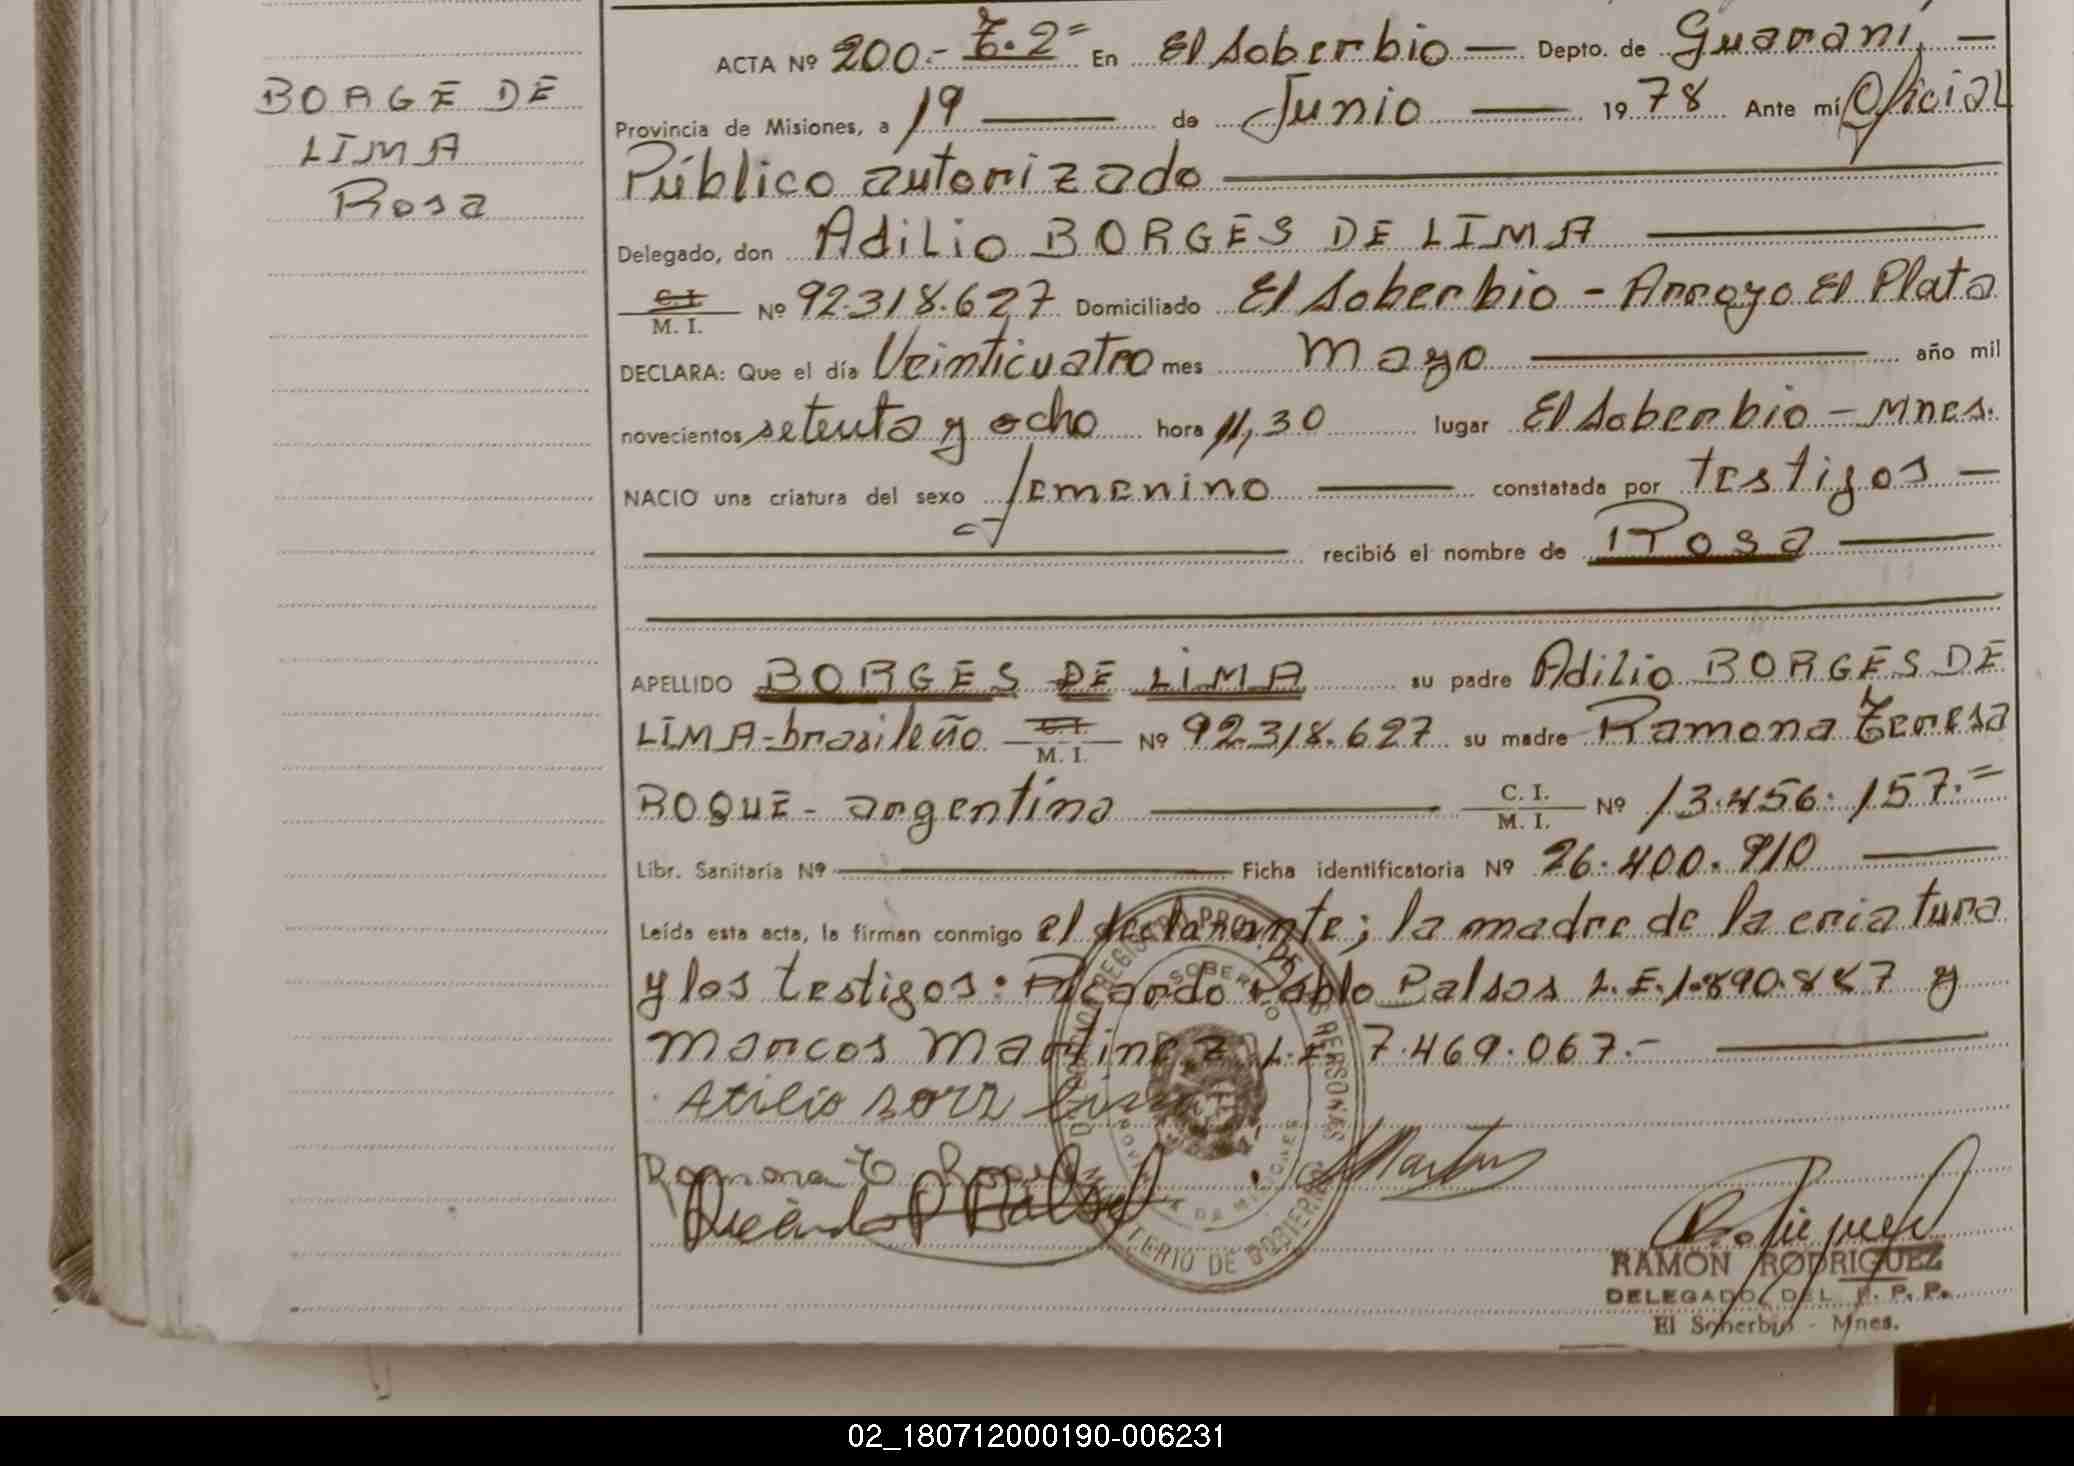 BORGE DE
LIMA
Rosa
ACTA Nº 200.- T.2= En El Soberbio — Depto. de Guaraní, —
Provincia de Misiones, a 19 — de Junio — 1978 Ante mí Oficial
Público autorizado —
Delegado, don Adilio BORGES DE LIMA —
C.I. M. I. Nº 92.318.627 Domiciliado El Soberbio - Arroyo El Plata
DECLARA: Que el día Veinticuatro mes mayo — año mil
novecientos setenta y ocho hora 11,30 lugar El Soberbio - Mnes.
NACIO una criatura del sexo femenino — constatada por testigos —
— recibió el nombre de Rosa —
APELLIDO BORGES DE LIMA su padre Adilio BORGES DE
LIMA - brasileño C.I. M. I. Nº 92.318.627 su madre Ramona Teresa
ROQUE - argentina — C. I. M. I. Nº 13.456.157.=
Libr. Sanitaria Nº — Ficha identificatoria Nº 26.400.910 —
Leída esta acta, la firman conmigo el declarante; la madre de la criatura
y los testigos: Ricardo Pablo Balsos L.E. 1.890.887 y
Marcos Martinez L.E. 7.469.067.- —
Atilio
Ramona T
Ricardo P
RAMON RODRIGUEZ
DELEGADO DEL R. P. P.
El Soberbio - Mnes.
REGISTRO PROV. DE LAS PERSONAS
EL SOBERBIO
PROVINCIA DE MISIONES
MINISTERIO DE GOBIERNO
02_180712000190-006231